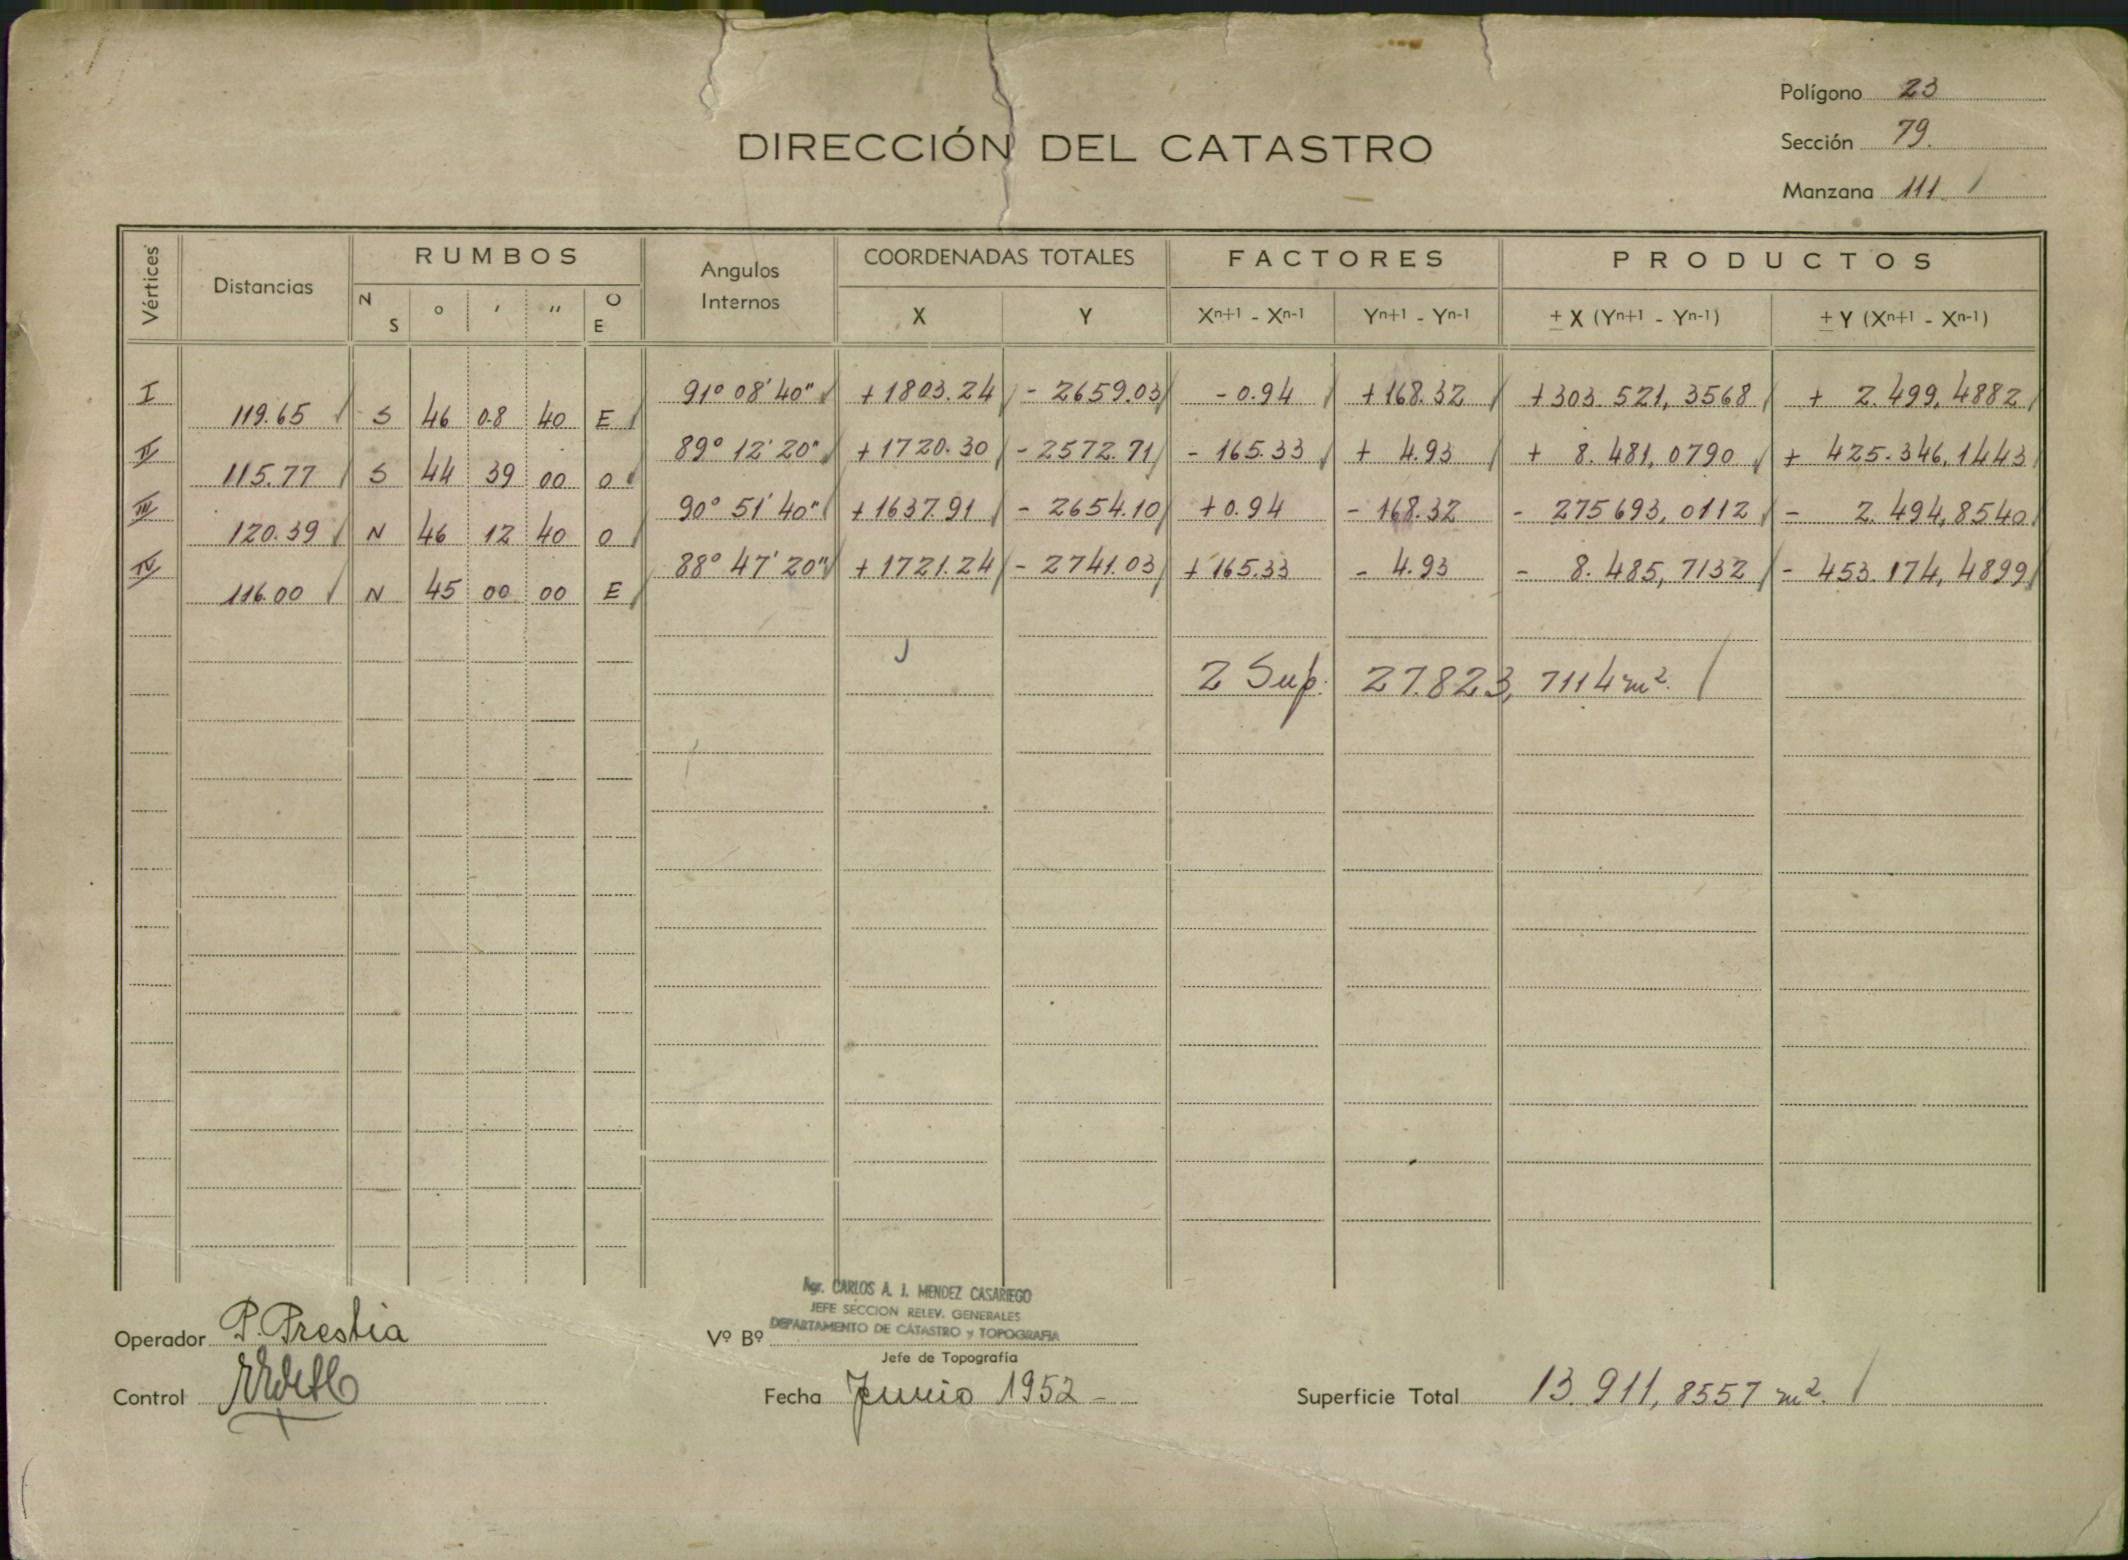 Polígono 23
DIRECCIÓN DEL CATASTRO
Sección 79.
Manzana 111. /
Vértices Distancias RUMBOS Angulos Internos COORDENADAS TOTALES FACTORES PRODUCTOS
N S ° ' '' O E X Y Xn+1 - Xn-1 Yn+1 - Yn-1 ± X (Yn+1 - Yn-1) ± Y (Xn+1 - Xn-1)
I 91° 08' 40" +1803.24 - 2659.03 - 0.94 +168.32 +303.521,3568 + 2.499,4882
119.65 S 46 08 40 E
II 89° 12' 20" +1720.30 - 2572.71 - 165.33 + 4.93 + 8.481,0790 + 425.346,1443
115.77 S 44 39 00 O
III 90° 51' 40" +1637.91 - 2654.10 +0.94 - 168.32 - 275693,0112 - 2.494,8540
120.39 N 46 12 40 O
IV 88° 47' 20" +1721.24 - 2741.03 +165.33 - 4.93 - 8.485,7132 - 453.174,4899
116.00 N 45 00 00 E
2 Sup. 27.823,7114 m². /
Agr. CARLOS A. J. MENDEZ CASARIEGO
JEFE SECCION RELEV. GENERALES
DEPARTAMENTO DE CATASTRO y TOPOGRAFIA
Operador P. Prestia Vº Bº
Jefe de Topografía
Control Fecha Junio 1952 - Superficie Total 13.911,8557 m². /